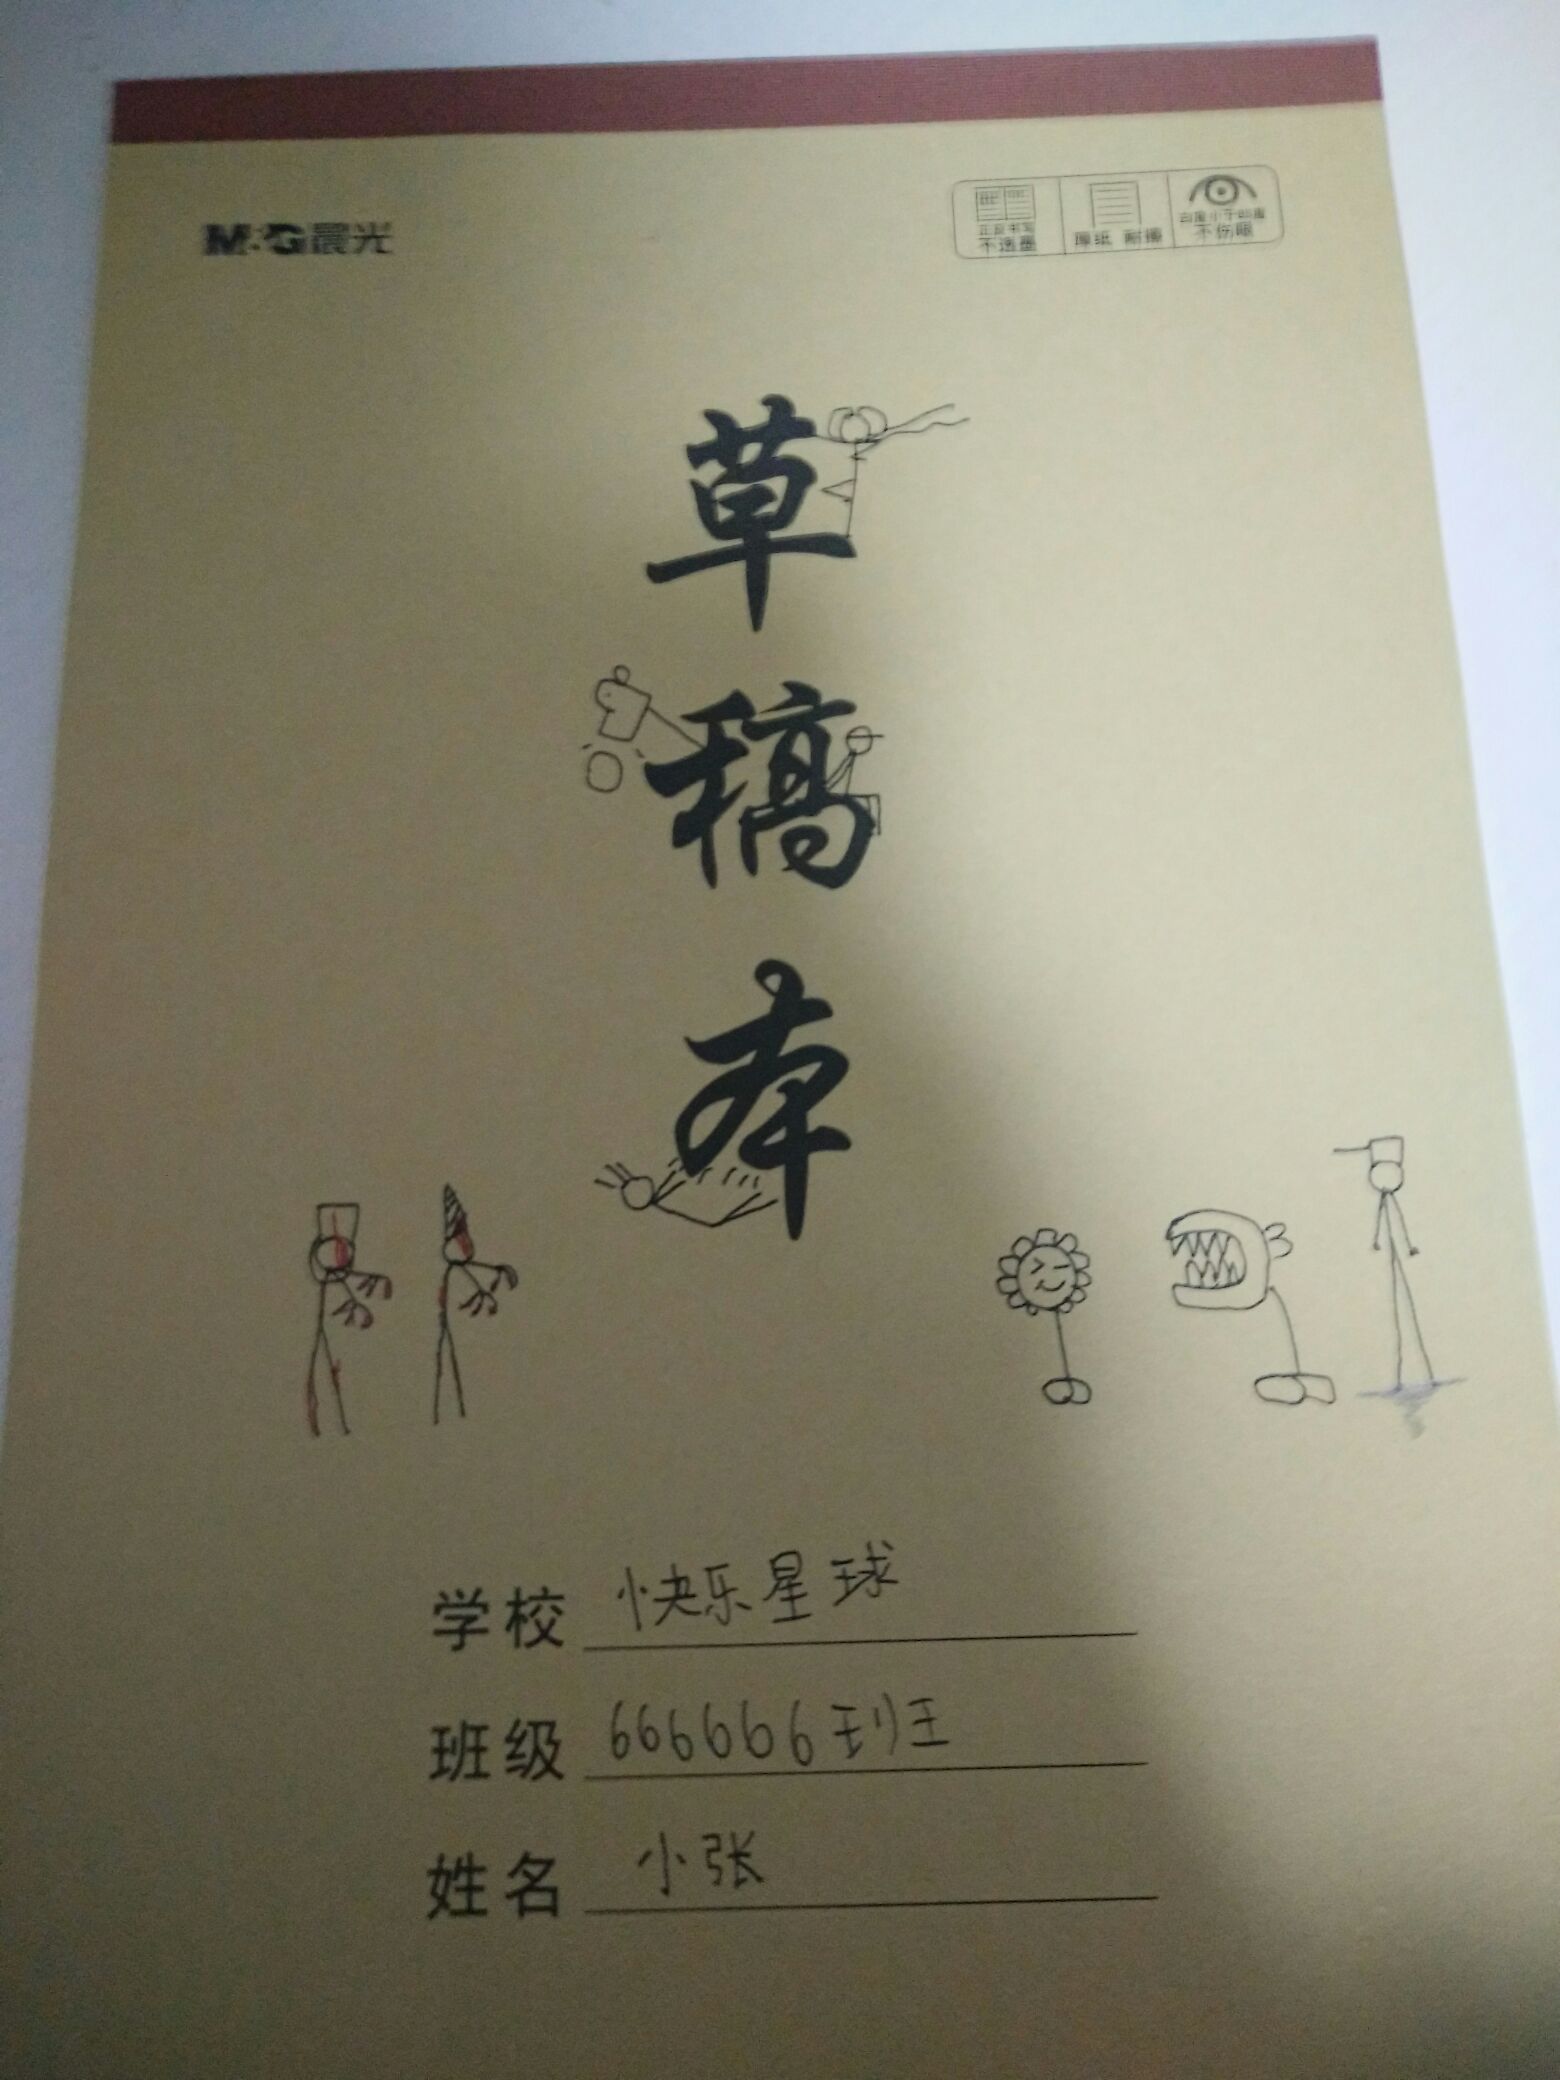 M&G晨光
正反书写
不透墨
厚纸 耐擦
白度小于85度
不伤眼
草
稿
本
学校 快乐星球
班级 666666班
姓名 小张